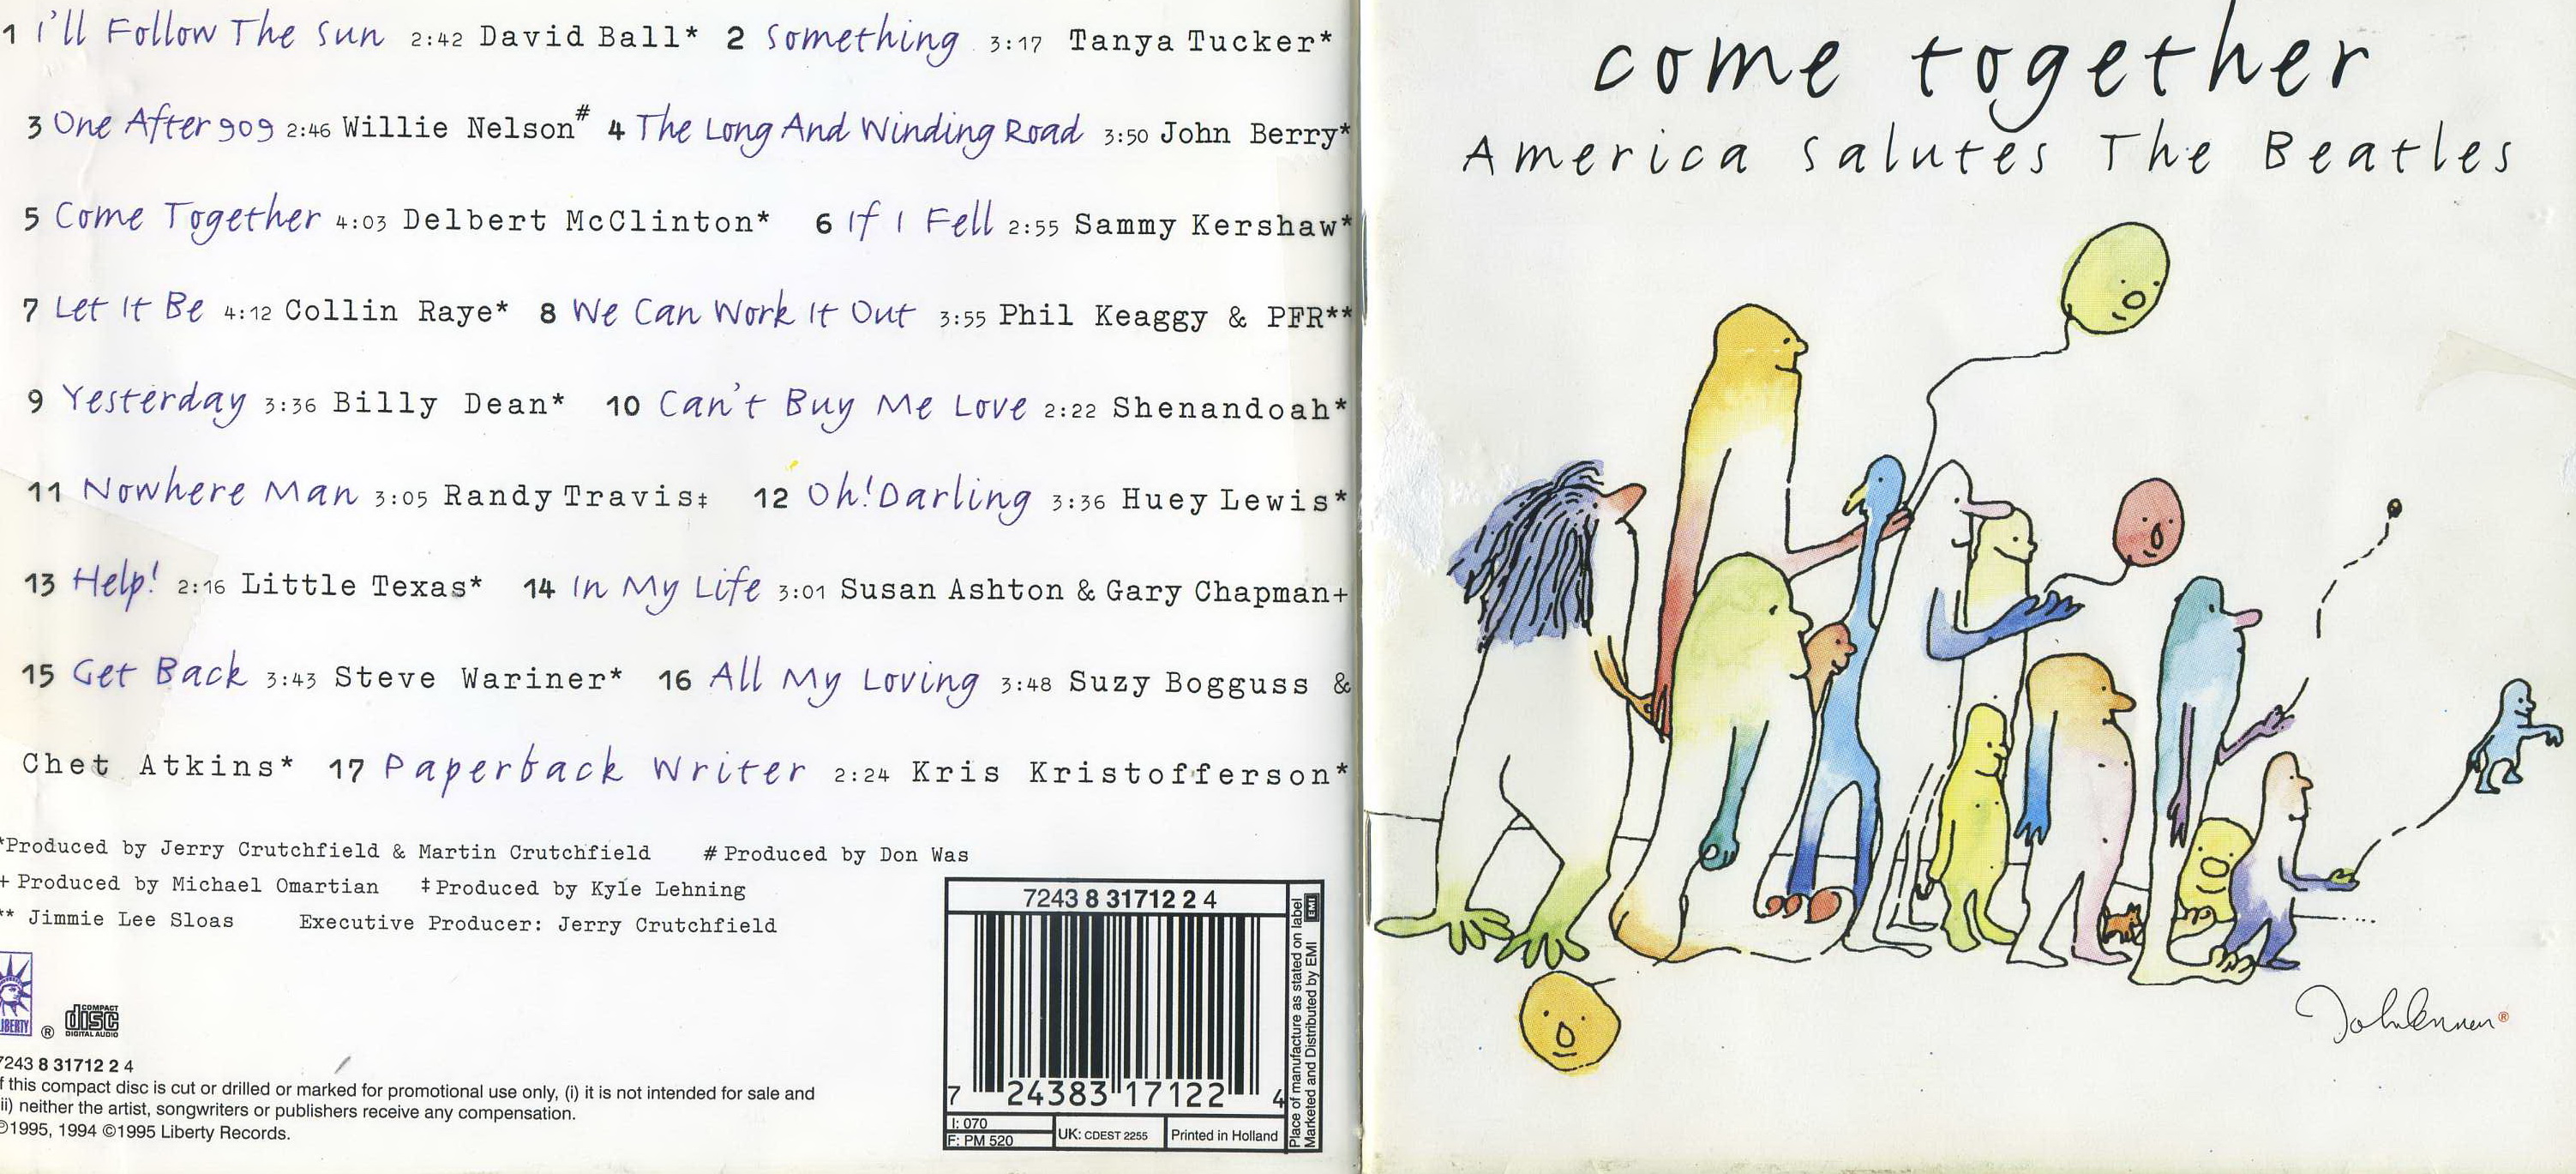 1 I'll Follow The Sun 2:42 David Ball* 2 Something 3:17 Tanya Tucker*
3 One After 909 2:46 Willie Nelson# 4 The Long And Winding Road 3:50 John Berry*
5 Come Together 4:03 Delbert McClinton* 6 If I Fell 2:55 Sammy Kershaw*
7 Let It Be 4:12 Collin Raye* 8 We Can Work It Out 3:55 Phil Keaggy & PFR**
9 Yesterday 3:36 Billy Dean* 10 Can't Buy Me Love 2:22 Shenandoah*
11 Nowhere Man 3:05 Randy Travis‡ 12 Oh! Darling 3:36 Huey Lewis*
13 Help! 2:16 Little Texas* 14 In My Life 3:01 Susan Ashton & Gary Chapman+
15 Get Back 3:43 Steve Wariner* 16 All My Loving 3:48 Suzy Bogguss &
Chet Atkins* 17 Paperback Writer 2:24 Kris Kristofferson*
*Produced by Jerry Crutchfield & Martin Crutchfield # Produced by Don Was
+ Produced by Michael Omartian ‡Produced by Kyle Lehning
** Jimmie Lee Sloas Executive Producer: Jerry Crutchfield
LIBERTY ®
COMPACT
disc
DIGITAL AUDIO
7243 8 31712 2 4
f this compact disc is cut or drilled or marked for promotional use only, (i) it is not intended for sale and
ii) neither the artist, songwriters or publishers receive any compensation.
℗1995, 1994 ©1995 Liberty Records.
7243 8 31712 2 4
7 24383 17122 4
I: 070
F: PM 520
UK: CDEST 2255
Printed in Holland
Place of manufacture as stated on label
Marketed and Distributed by EMI
EMI
come together
America Salutes The Beatles
John Lennon®